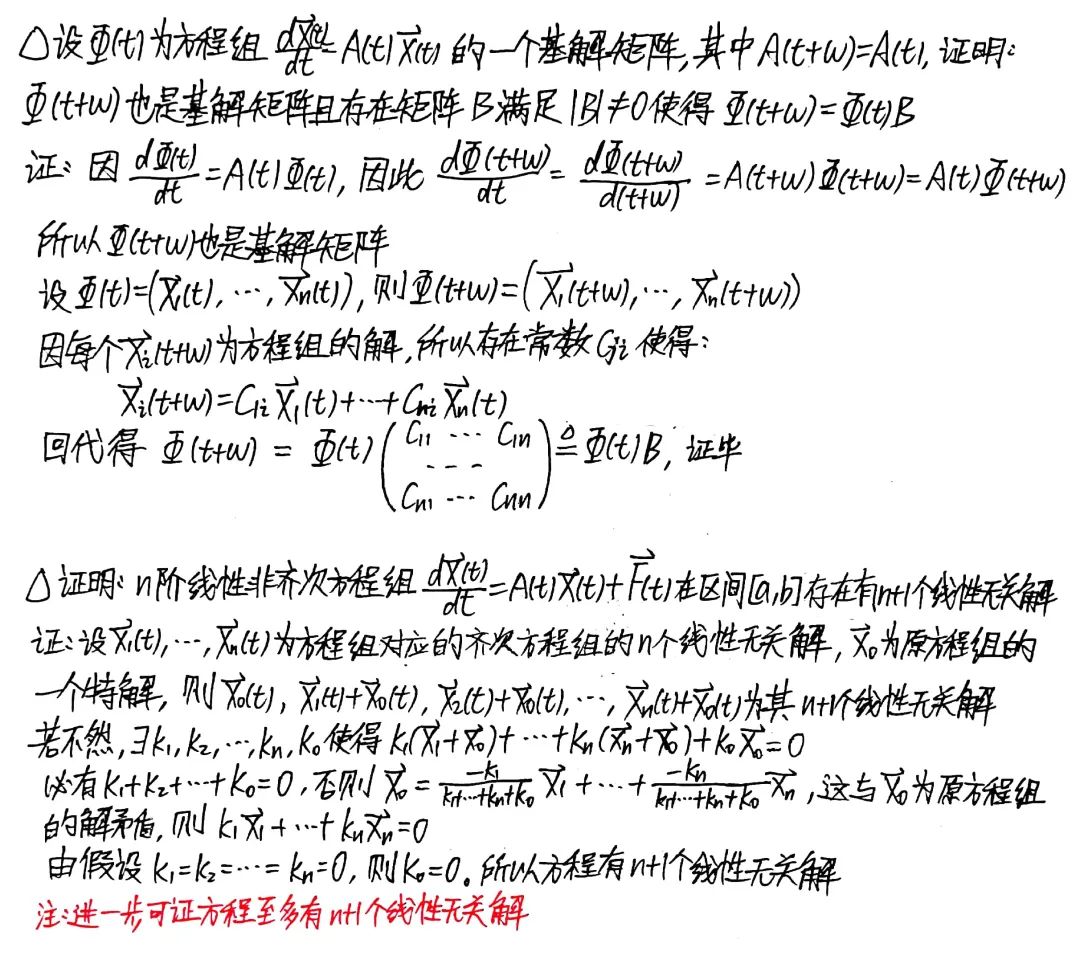 △设Φ(t)为方程组 dX⃗(t)/dt=A(t)X⃗(t) 的一个基解矩阵,其中A(t+w)=A(t),证明:
Φ(t+w)也是基解矩阵且存在矩阵B满足|B|≠0使得 Φ(t+w)=Φ(t)B
证:因 dΦ(t)/dt=A(t)Φ(t),因此 dΦ(t+w)/dt=dΦ(t+w)/d(t+w)=A(t+w)Φ(t+w)=A(t)Φ(t+w)
所以Φ(t+w)也是基解矩阵
设Φ(t)=(X⃗₁(t),⋯,X⃗n(t)),则Φ(t+w)=(X⃗₁(t+w),⋯,X⃗n(t+w))
因每个X⃗i(t+w)为方程组的解,所以存在常数Cji使得:
X⃗i(t+w)=C1i X⃗₁(t)+⋯+Cni X⃗n(t)
回代得 Φ(t+w) = Φ(t)(C11 ⋯ C1n --- Cn1 ⋯ Cnn)≜Φ(t)B,证毕
△证明:n阶线性非齐次方程组 dX⃗(t)/dt=A(t)X⃗(t)+F⃗(t)在区间[a,b]存在有n+1个线性无关解
证:设X⃗₁(t),⋯,X⃗n(t)为方程组对应的齐次方程组的n个线性无关解,X⃗₀为原方程组的
一个特解,则X⃗₀(t),X⃗₁(t)+X⃗₀(t),X⃗₂(t)+X⃗₀(t),⋯,X⃗n(t)+X⃗₀(t)为其n+1个线性无关解
若不然,∃k₁,k₂,⋯,kn,k₀使得k₁(X⃗₁+X⃗₀)+⋯+kn(X⃗n+X⃗₀)+k₀X⃗₀=0
必有k₁+k₂+⋯+k₀=0,否则X⃗₀=-k₁/(k₁+⋯+kn+k₀) X⃗₁+⋯+-kn/(k₁+⋯+kn+k₀) X⃗n,这与X⃗₀为原方程组
的解矛盾,则k₁X⃗₁+⋯+knX⃗n=0
由假设k₁=k₂=⋯=kn=0,则k₀=0。所以方程有n+1个线性无关解
注:进一步可证方程至多有n+1个线性无关解